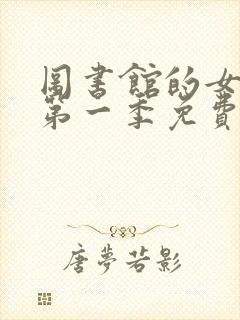 圖書館的女
第一季免費
唐夢若影